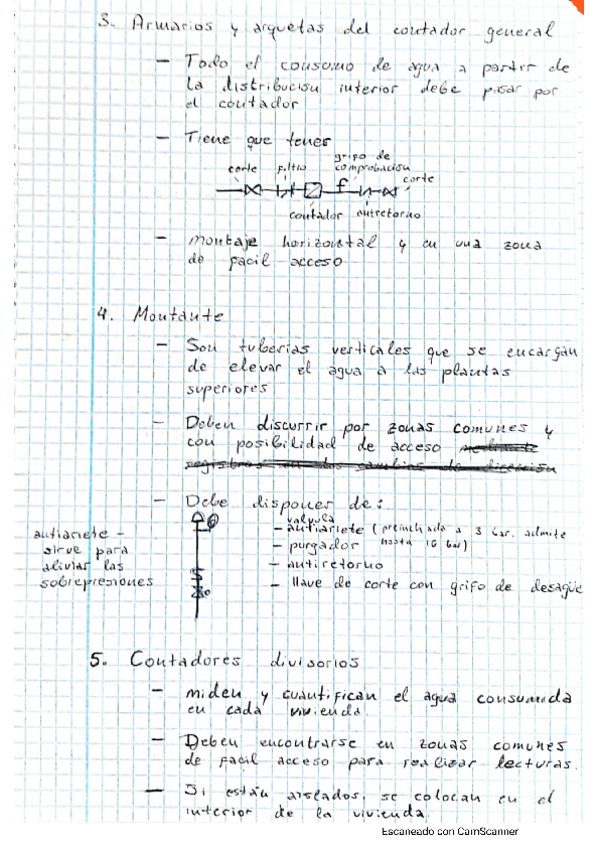 3. Armarios y arquetas del contador general
— Todo el consumo de agua a partir de
la distribución interior debe pasar por
el contador
— Tiene que tener
grifo de
corte filtro comprobación
corte
contador antiretorno
— montaje horizontal y en una zona
de facil acceso
4. Montante
— Son tuberias verticales que se encargan
de elevar el agua a las plantas
superiores
— Deben discurrir por zonas comunes y
con posibilidad de acceso mediante
registros en los cambios de dirección
— Debe disponer de:
valvula
antiariete –
sirve para
aliviar las
sobrepresiones
– antiariete (preinchada a 3 bar. admite
hasta 10 bar)
– purgador
– antiretorno
– llave de corte con grifo de desagüe
5. Contadores divisorios
— miden y cuantifican el agua consumida
en cada vivienda.
— Deben encontrarse en zonas comunes
de facil acceso para realizar lecturas.
— Si están aislados, se colocan en el
interior de la vivienda.
Escaneado con CamScanner